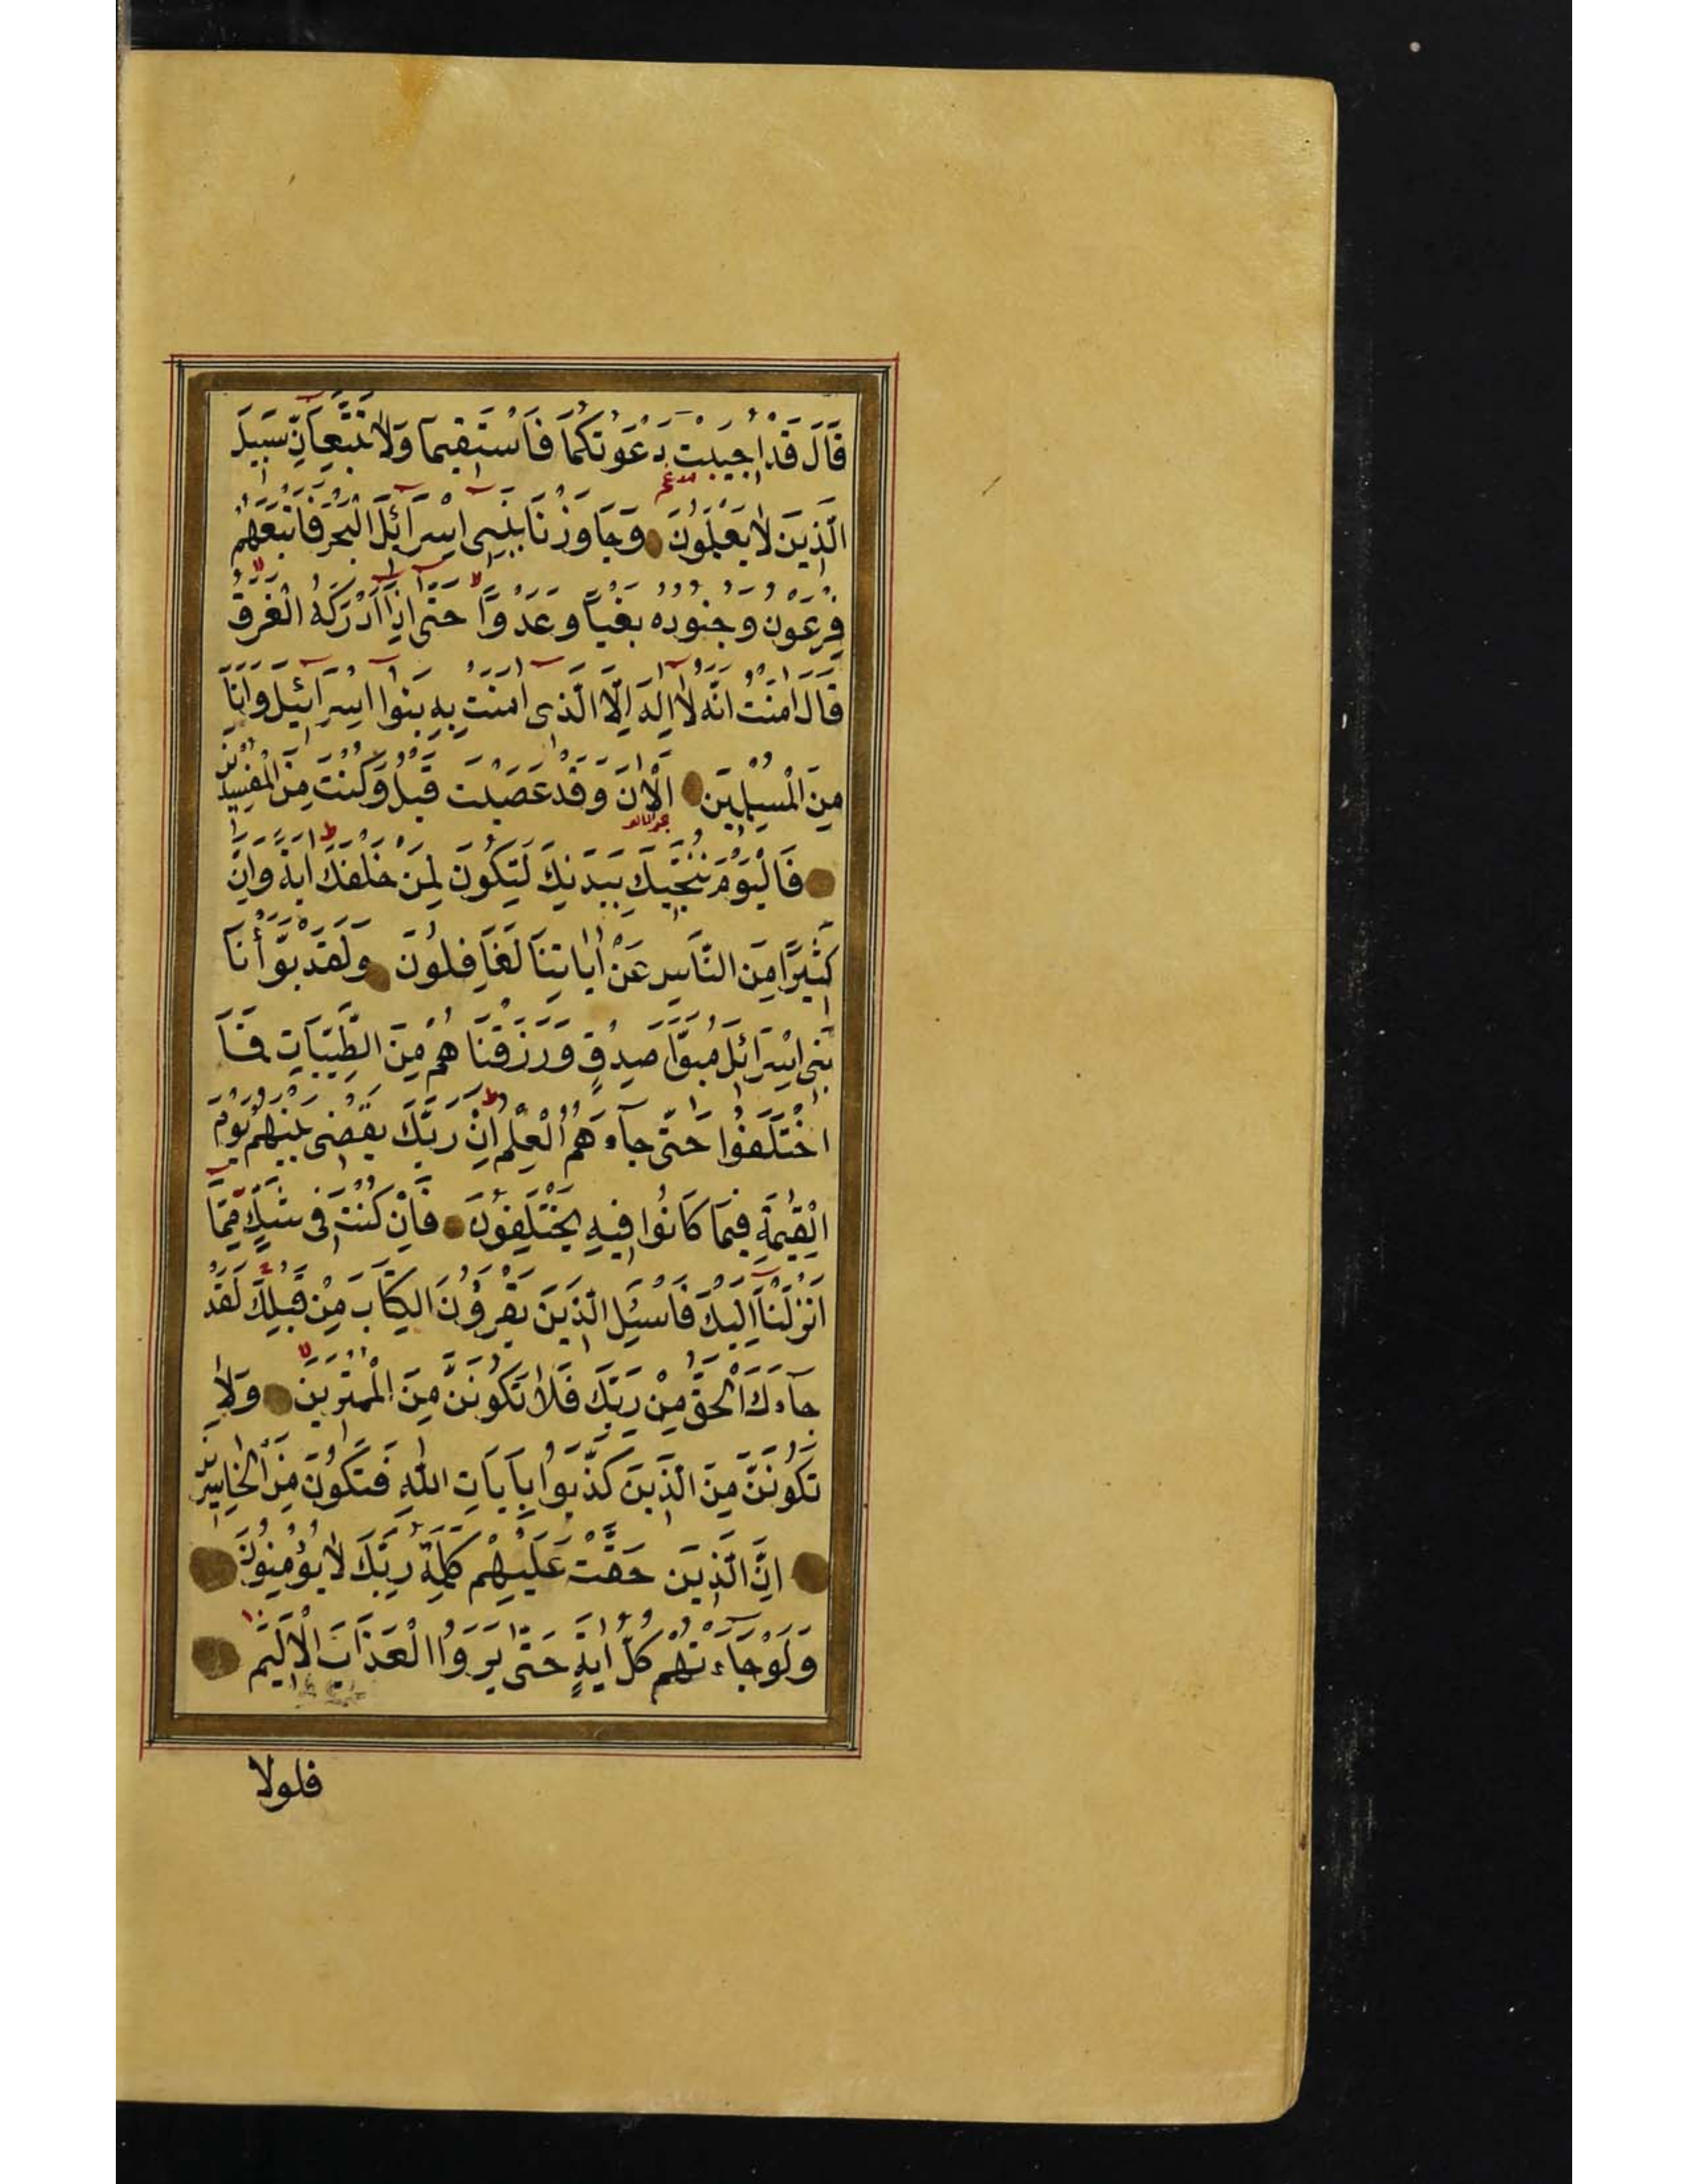 قَالَ قَدْ اُجِيبَتْ دَعْوَتُكُمَا فَاسْتَقِيمَا وَلَا تَتَّبِعَآنِّ سَبِيلَ
مدغم
الَّذِينَ لَا يَعْلَمُونَ وَجَاوَزْنَا بِبَنِى اِسْرَآئِلَ الْبَحْرَ فَاَتْبَعَهُمْ
فِرْعَوْنُ وَجُنُودُهُ بَغْيًا وَعَدْوًا حَتَّى اِذَا اَدْرَكَهُ الْغَرَقُ
قَالَ اٰمَنْتُ اَنَّهُ لَا اِلٰهَ اِلَّا الَّذِى اٰمَنَتْ بِهِ بَنُوا اِسْرَآئِيلَ وَاَنَا
مِنَ الْمُسْلِمِينَ اَلْاٰنَ وَقَدْ عَصَيْتَ قَبْلُ وَكُنْتَ مِنَ الْمُفْسِدِينَ
فَالْيَوْمَ نُنَجِّيكَ بِبَدَنِكَ لِتَكُونَ لِمَنْ خَلْفَكَ اٰيَةً وَاِنَّ
كَثِيرًا مِنَ النَّاسِ عَنْ اٰيَاتِنَا لَغَافِلُونَ وَلَقَدْ بَوَّأْنَا
بَنِى اِسْرَآئِلَ مُبَوَّاَ صِدْقٍ وَرَزَقْنَاهُمْ مِنَ الطَّيِّبَاتِ فَمَا
اخْتَلَفُوا حَتَّى جَآءَهُمُ الْعِلْمُ اِنَّ رَبَّكَ يَقْضِى بَيْنَهُمْ يَوْمَ
الْقِيٰمَةِ فِيمَا كَانُوا فِيهِ يَخْتَلِفُونَ فَاِنْ كُنْتَ فِى شَكٍّ مِمَّا
اَنْزَلْنَا اِلَيْكَ فَاسْئَلِ الَّذِينَ يَقْرَؤُنَ الْكِتَابَ مِنْ قَبْلِكَ لَقَدْ
جَآءَكَ الْحَقُّ مِنْ رَبِّكَ فَلَا تَكُونَنَّ مِنَ الْمُمْتَرِينَ وَلَا
تَكُونَنَّ مِنَ الَّذِينَ كَذَّبُوا بِاٰيَاتِ اللّٰهِ فَتَكُونَ مِنَ الْخَاسِرِينَ
اِنَّ الَّذِينَ حَقَّتْ عَلَيْهِمْ كَلِمَةُ رَبِّكَ لَا يُؤْمِنُونَ
وَلَوْ جَآءَتْهُمْ كُلُّ اٰيَةٍ حَتَّى يَرَوُا الْعَذَابَ الْاَلِيمَ
فلولا